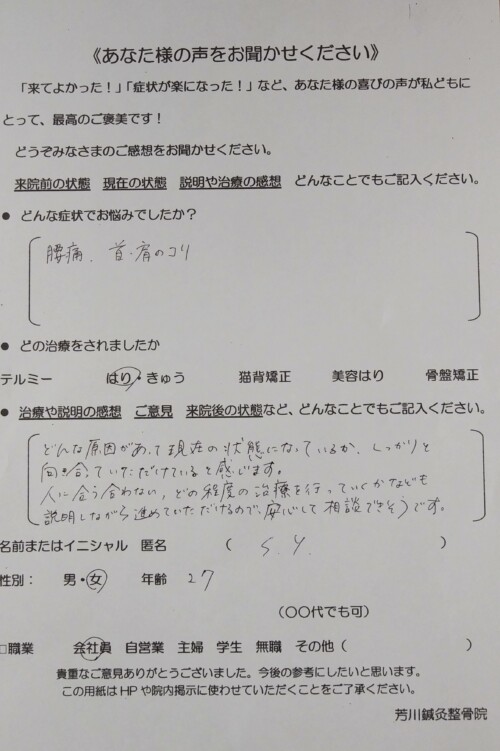 《あなた様の声をお聞かせください》
「来てよかった！」「症状が楽になった！」など、あなた様の喜びの声が私どもに
とって、最高のご褒美です！
どうぞみなさまのご感想をお聞かせください。
来院前の状態　現在の状態　説明や治療の感想　どんなことでもご記入ください。
● どんな症状でお悩みでしたか？
腰痛、首・肩のコリ
● どの治療をされましたか
テルミー　はり・きゅう　猫背矯正　美容はり　骨盤矯正
● 治療や説明の感想　ご意見　来院後の状態など、どんなことでもご記入ください。
どんな原因があって現在の状態になっているか、しっかりと
向き合っていただけていると感じます。
人に合う合わない、どの程度の治療を行っていくかなども
説明しながら進めていただけるので、安心して相談できそうです。
名前またはイニシャル　匿名　（　S.Y.　）
性別：　男・女　年齢　27
（〇〇代でも可）
□職業　会社員　自営業　主婦　学生　無職　その他（　）
貴重なご意見ありがとうございました。今後の参考にしたいと思います。
この用紙はHPや院内掲示に使わせていただくことをご了承ください。
芳川鍼灸整骨院